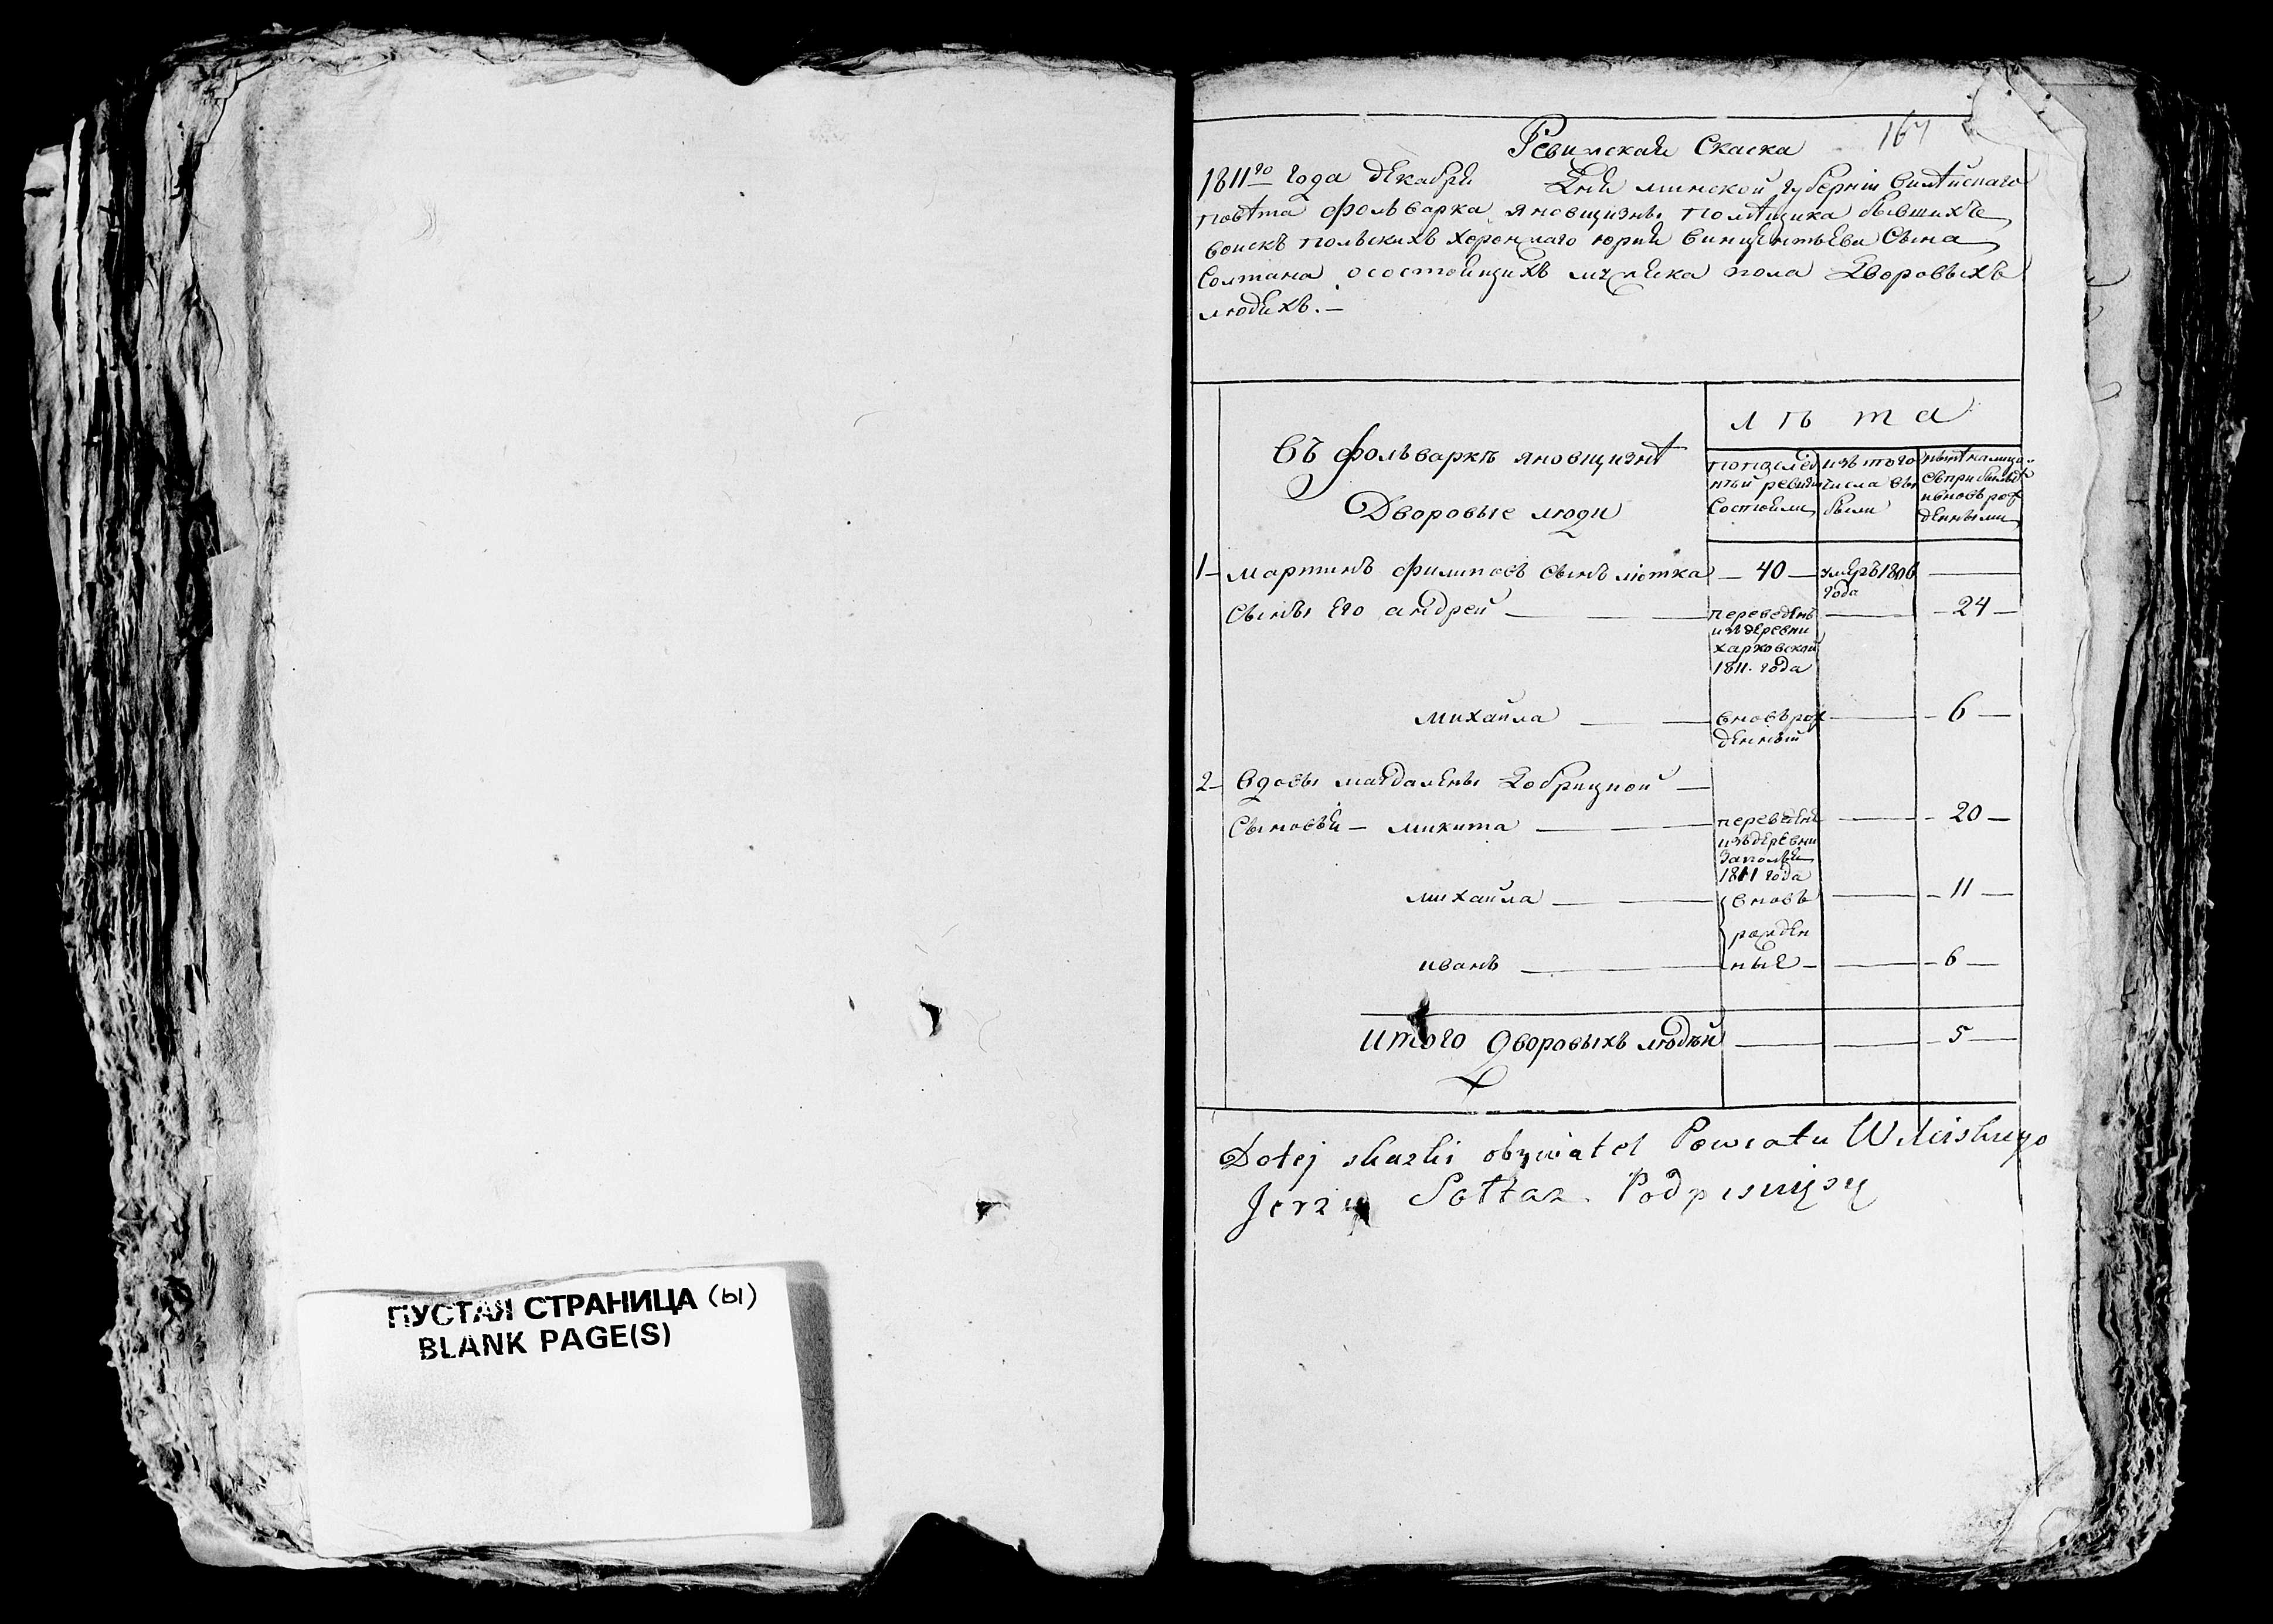 ПУСТАЯ СТРАНИЦА (ы)
BLANK PAGE(S)
Ревижская Скаска
1811го года декабря Дня минской губерніи вилѣйскаго
повѣта фольварка яновщизны помѣщика бывшихъ
воискъ польскихъ хоронжаго юрия винцентьева Сына
Солтана о состоящихъ мужеска пола Дворовыхъ
людяхъ.—
лѣта
Въ фольваркѣ яновщизнѣ
Дворовые люди
по послед
нѣй ревизіи
Состояли
изъ того
числа вы
были
нынѣ на лицо
съ прибылые
и вновь рож
денными
1 – мартинъ филиповъ сынъ лютка — 40 — умеръ 1806 года —
Сыны Его андрей — переведенъ — 24 —
изъ деревни
харковской
1811. года
михаила — вновь рож — 6 —
денный
2 – Вдовы магдалены Добрицкой —
Сыновья – микита — переведенъ — 20 —
изъ деревни
Заполья
1811 года
михаила — вновь — 11 —
рожден
иванъ — ные — 6 —
итого дворовыхъ людей — 5 —
Do tej skazki obywatel Powiatu Wileiskiego
Jerzy Sołtan Podpisuję sie